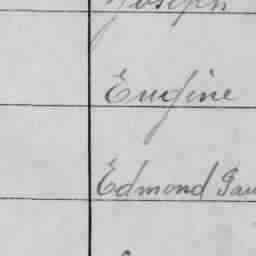 Joseph
Eugine
Edmond